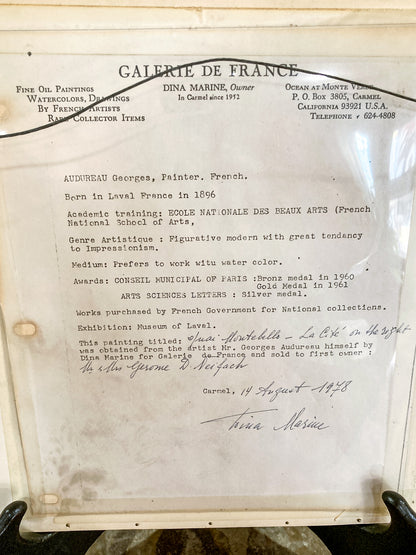 GALERIE DE FRANCE
FINE OIL PAINTINGS
WATERCOLORS, DRAWINGS
BY FRENCH ARTISTS
RARE COLLECTOR ITEMS
DINA MARINE, Owner
In Carmel since 1952
OCEAN AT MONTE VERDE
P. O. BOX 3805, CARMEL
CALIFORNIA 93921 U.S.A.
TELEPHONE • 624-4808
AUDUREAU Georges, Painter. French.
Born in Laval France in 1896
Academic training: ECOLE NATIONALE DES BEAUX ARTS (French
National School of Arts,
Genre Artistique : Figurative modern with great tendancy
to Impressionism.
Medium: Prefers to work witu water color.
Awards: CONSEIL MUNICIPAL OF PARIS :Bronz medal in 1960
Gold Medal in 1961
ARTS SCIENCES LETTERS : Silver medal.
Works purchased by French Government for National collections.
Exhibition: Museum of Laval.
This painting titled: Quai Montebello - La Cité on the right
was obtained from the artist Mr. Georges Audureau himself by
Dina Marine for Galerie de France and sold to first owner :
Mr & Mrs Gerome D. Neifach
Carmel, 14 August 1978
Dina Marine